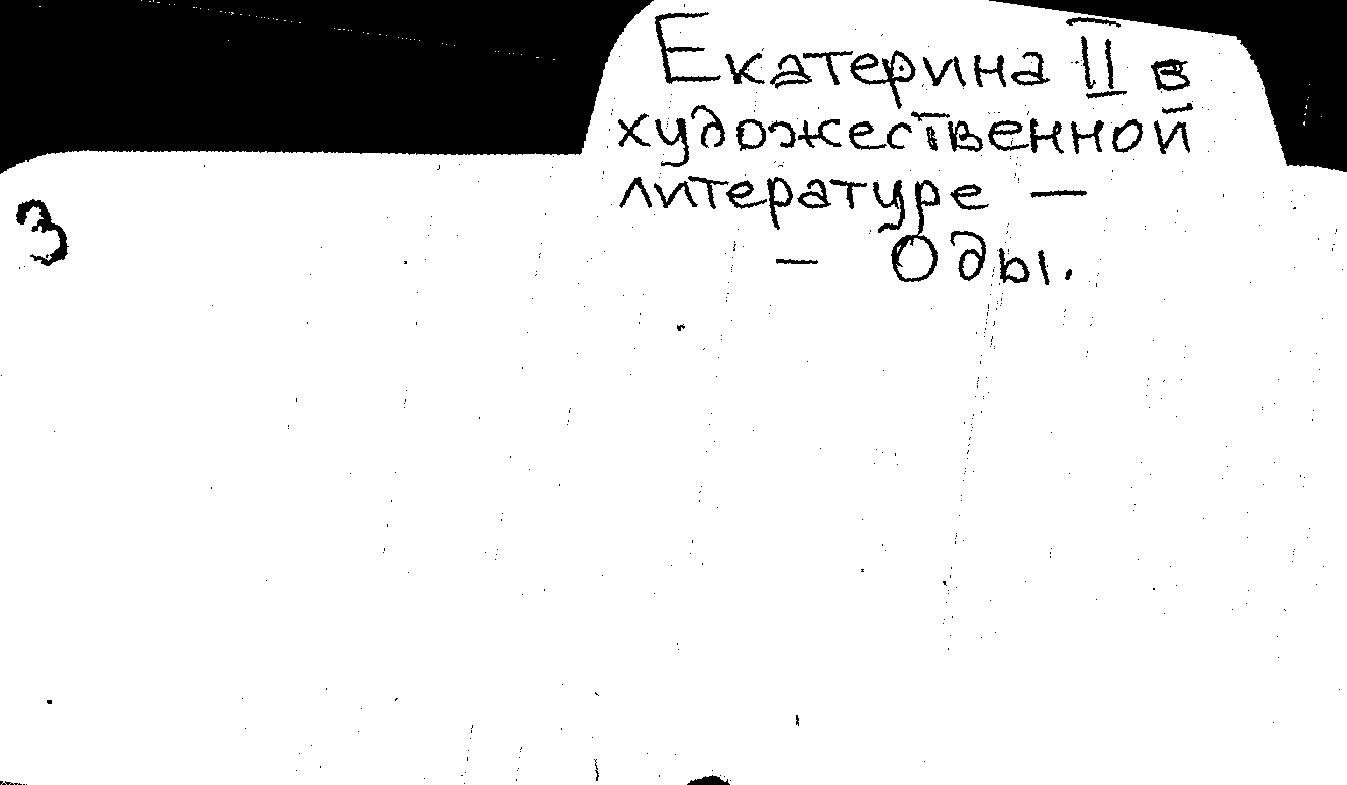 Екатерина II в
художественной
литературе —
— Оды.
3